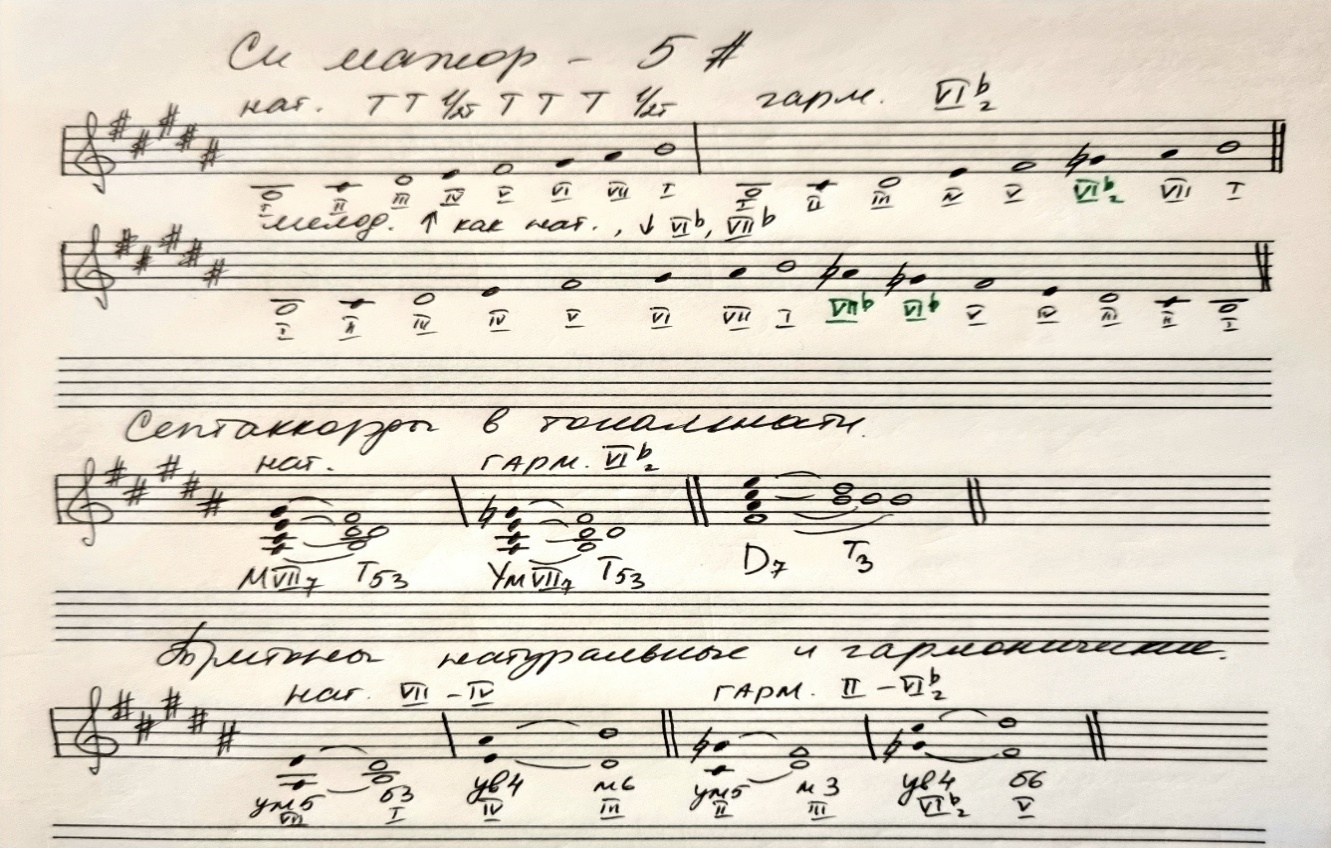 Си мажор - 5 #
нат. Т Т 1/2т Т Т Т 1/2т гарм. VI♭г
I II III IV V VI VII I I II III IV V VI♭г VII I
мелод. ↑ как нат., ↓ VI♭, VII♭
I II IV IV V VI VII I VII♭ VI♭ V IV III II I
Септаккорды в тональности.
нат. ГАРМ. VI♭г
МVII7 Т53 УмVII7 Т53 D7 Т3
Тритоны натуральные и гармонические.
нат. VII - IV ГАРМ. II - VI♭г
ум5 б3 ув4 м6 ум5 м3 ув4 б6
VII I IV III II III VI♭г V